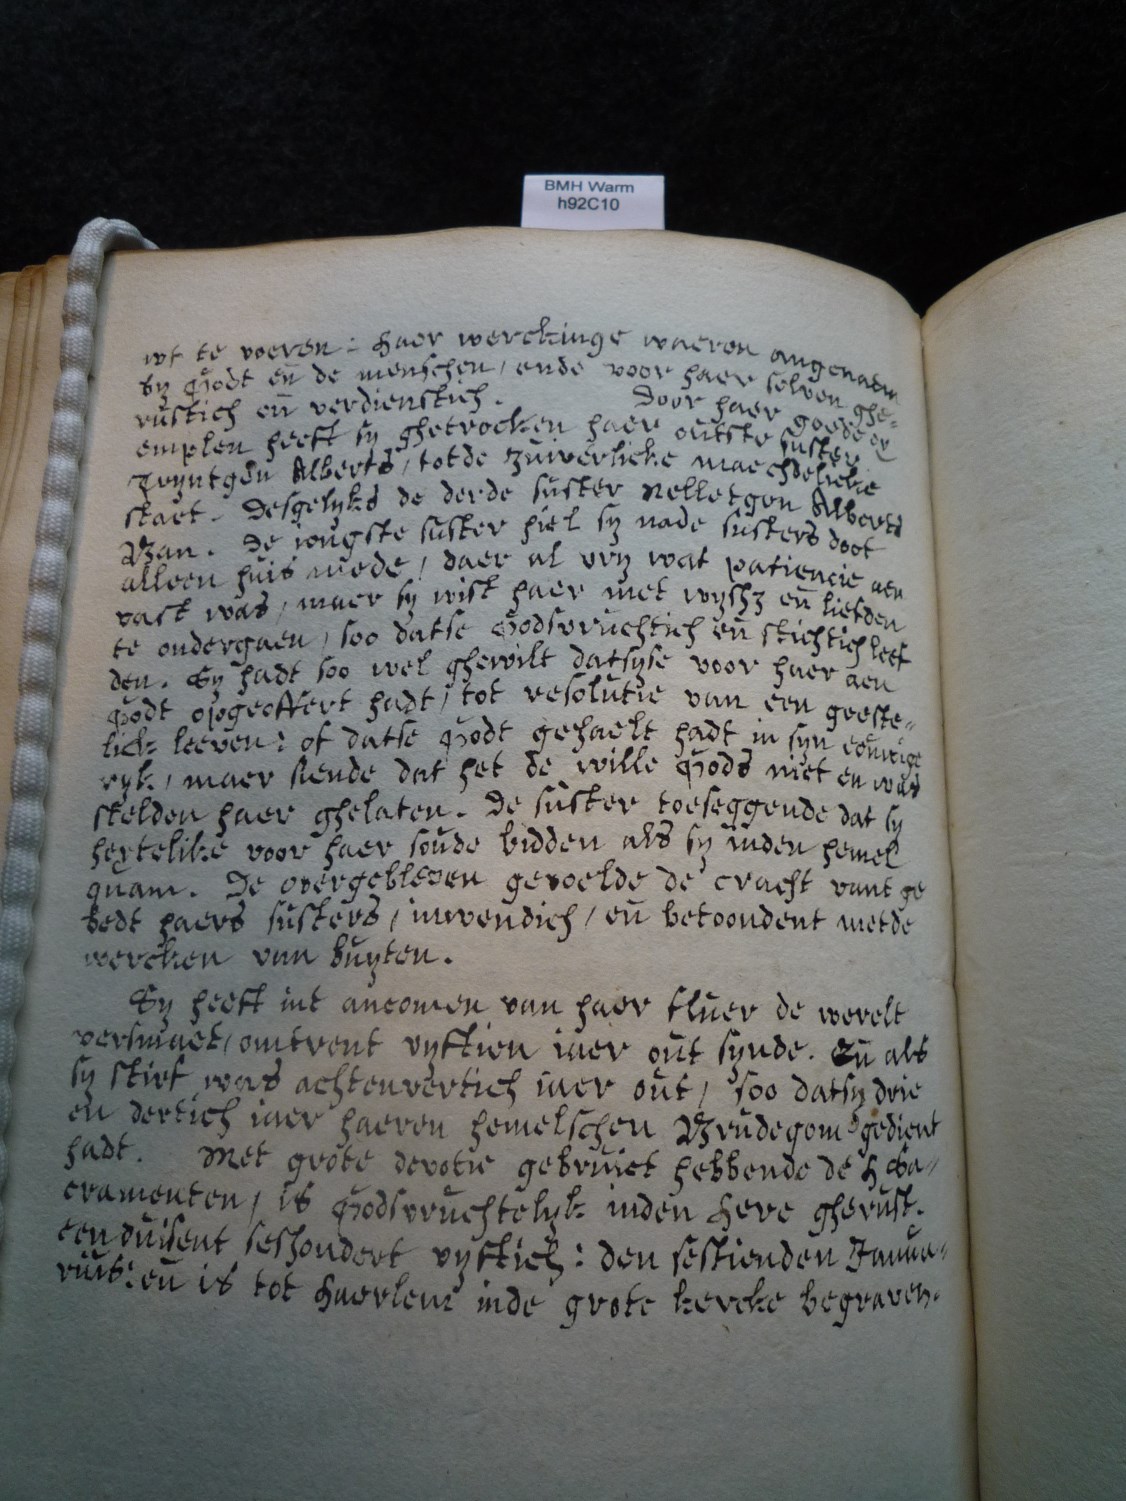 BMH Warm
h92C10
wt te voeren: haer werckinge waeren angenaem
by Godt eñ de menschen, ende voor haer selven ghe-
rustich eñ verdienstich. Door haer goede ex
emplen heeft sy ghetrocken haer outste suster
Tryntgen Alberts, totde zuiverlicke maechdelicke
staet. Desgelyks de derde suster Nelletgen Alberts
Van. De iongste suster hiel sy nade susters doot
alleen huis mede, daer al vry wat patiencie aen
vast was, maer sy wist haer met wysh3 eñ liefden
te ondergaen, soo datse Godsvruchtich eñ stichtich leef
den. Sy hadt soo wel ghewilt datsyse voor haer aen
Godt opgeoffert hadt, tot resolutie van een geeste-
lick leeven: of datse Godt gehaelt hadt in syn eeuwige
ryk, maer siende dat het de wille Gods niet en was
stelden haer ghelaten. De suster toeseggende dat sy
hertelike voor haer soude bidden als sy inden hemel
quam. De overgebleven gevoelde de cracht vant ge
bedt haers susters, inwendich, eñ betoondent metde
wercken van buyten.
Sy heeft int ancomen van haer fluer de werelt
versmaet, omtrent vyftien iaer out synde. Eñ als
sy stirf was achtenvertich iaer out, soo datsy drie
en dertich iaer haeren hemelschen Brudegom gedient
hadt. Met grote devotie gebruict hebbende de H Sa-
cramenten, is Godsvruchtelyk inden Here gherust.
een duisent seshondert vyftich: den sestienden Janua-
rius: eñ is tot Haerlem inde grote kercke begraven.